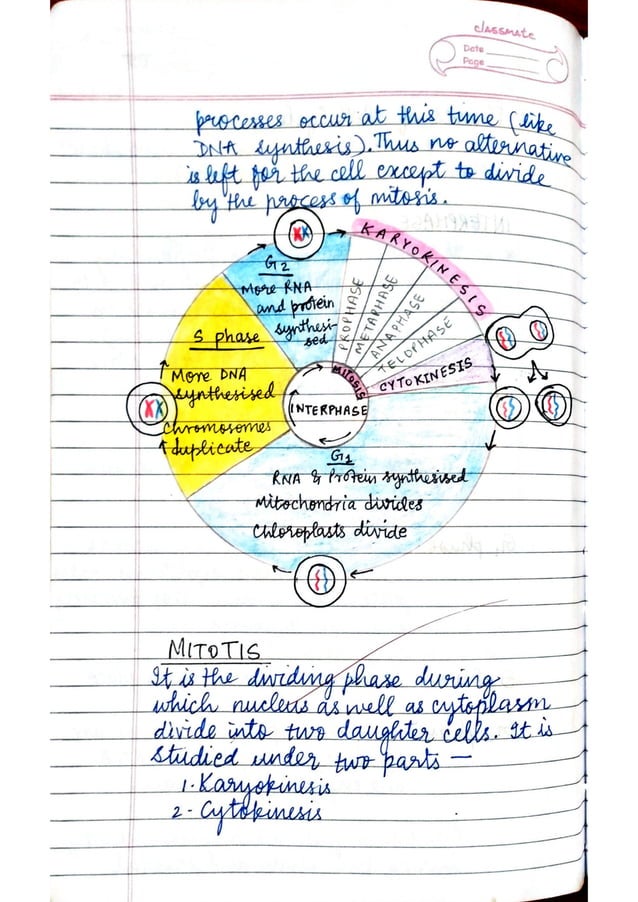 classmate
Date
Page
processes occur at this time (like
DNA synthesis). Thus no alternative
is left for the cell except to divide
by the process of mitosis.
KARYOKINESIS
G2
More RNA
and protein
synthesi-
sed
PROPHASE
METAPHASE
ANAPHASE
TELOPHASE
CYTOKINESIS
MITOSIS
S phase
More DNA
synthesised
Chromosomes
duplicate
INTERPHASE
G1
RNA & Protein synthesised
Mitochondria divides
Chloroplasts divide
MITOTIS
It is the dividing phase during
which nucleus as well as cytoplasm
divide into two daughter cells. It is
studied under two parts —
1. Karyokinesis
2 - Cytokinesis